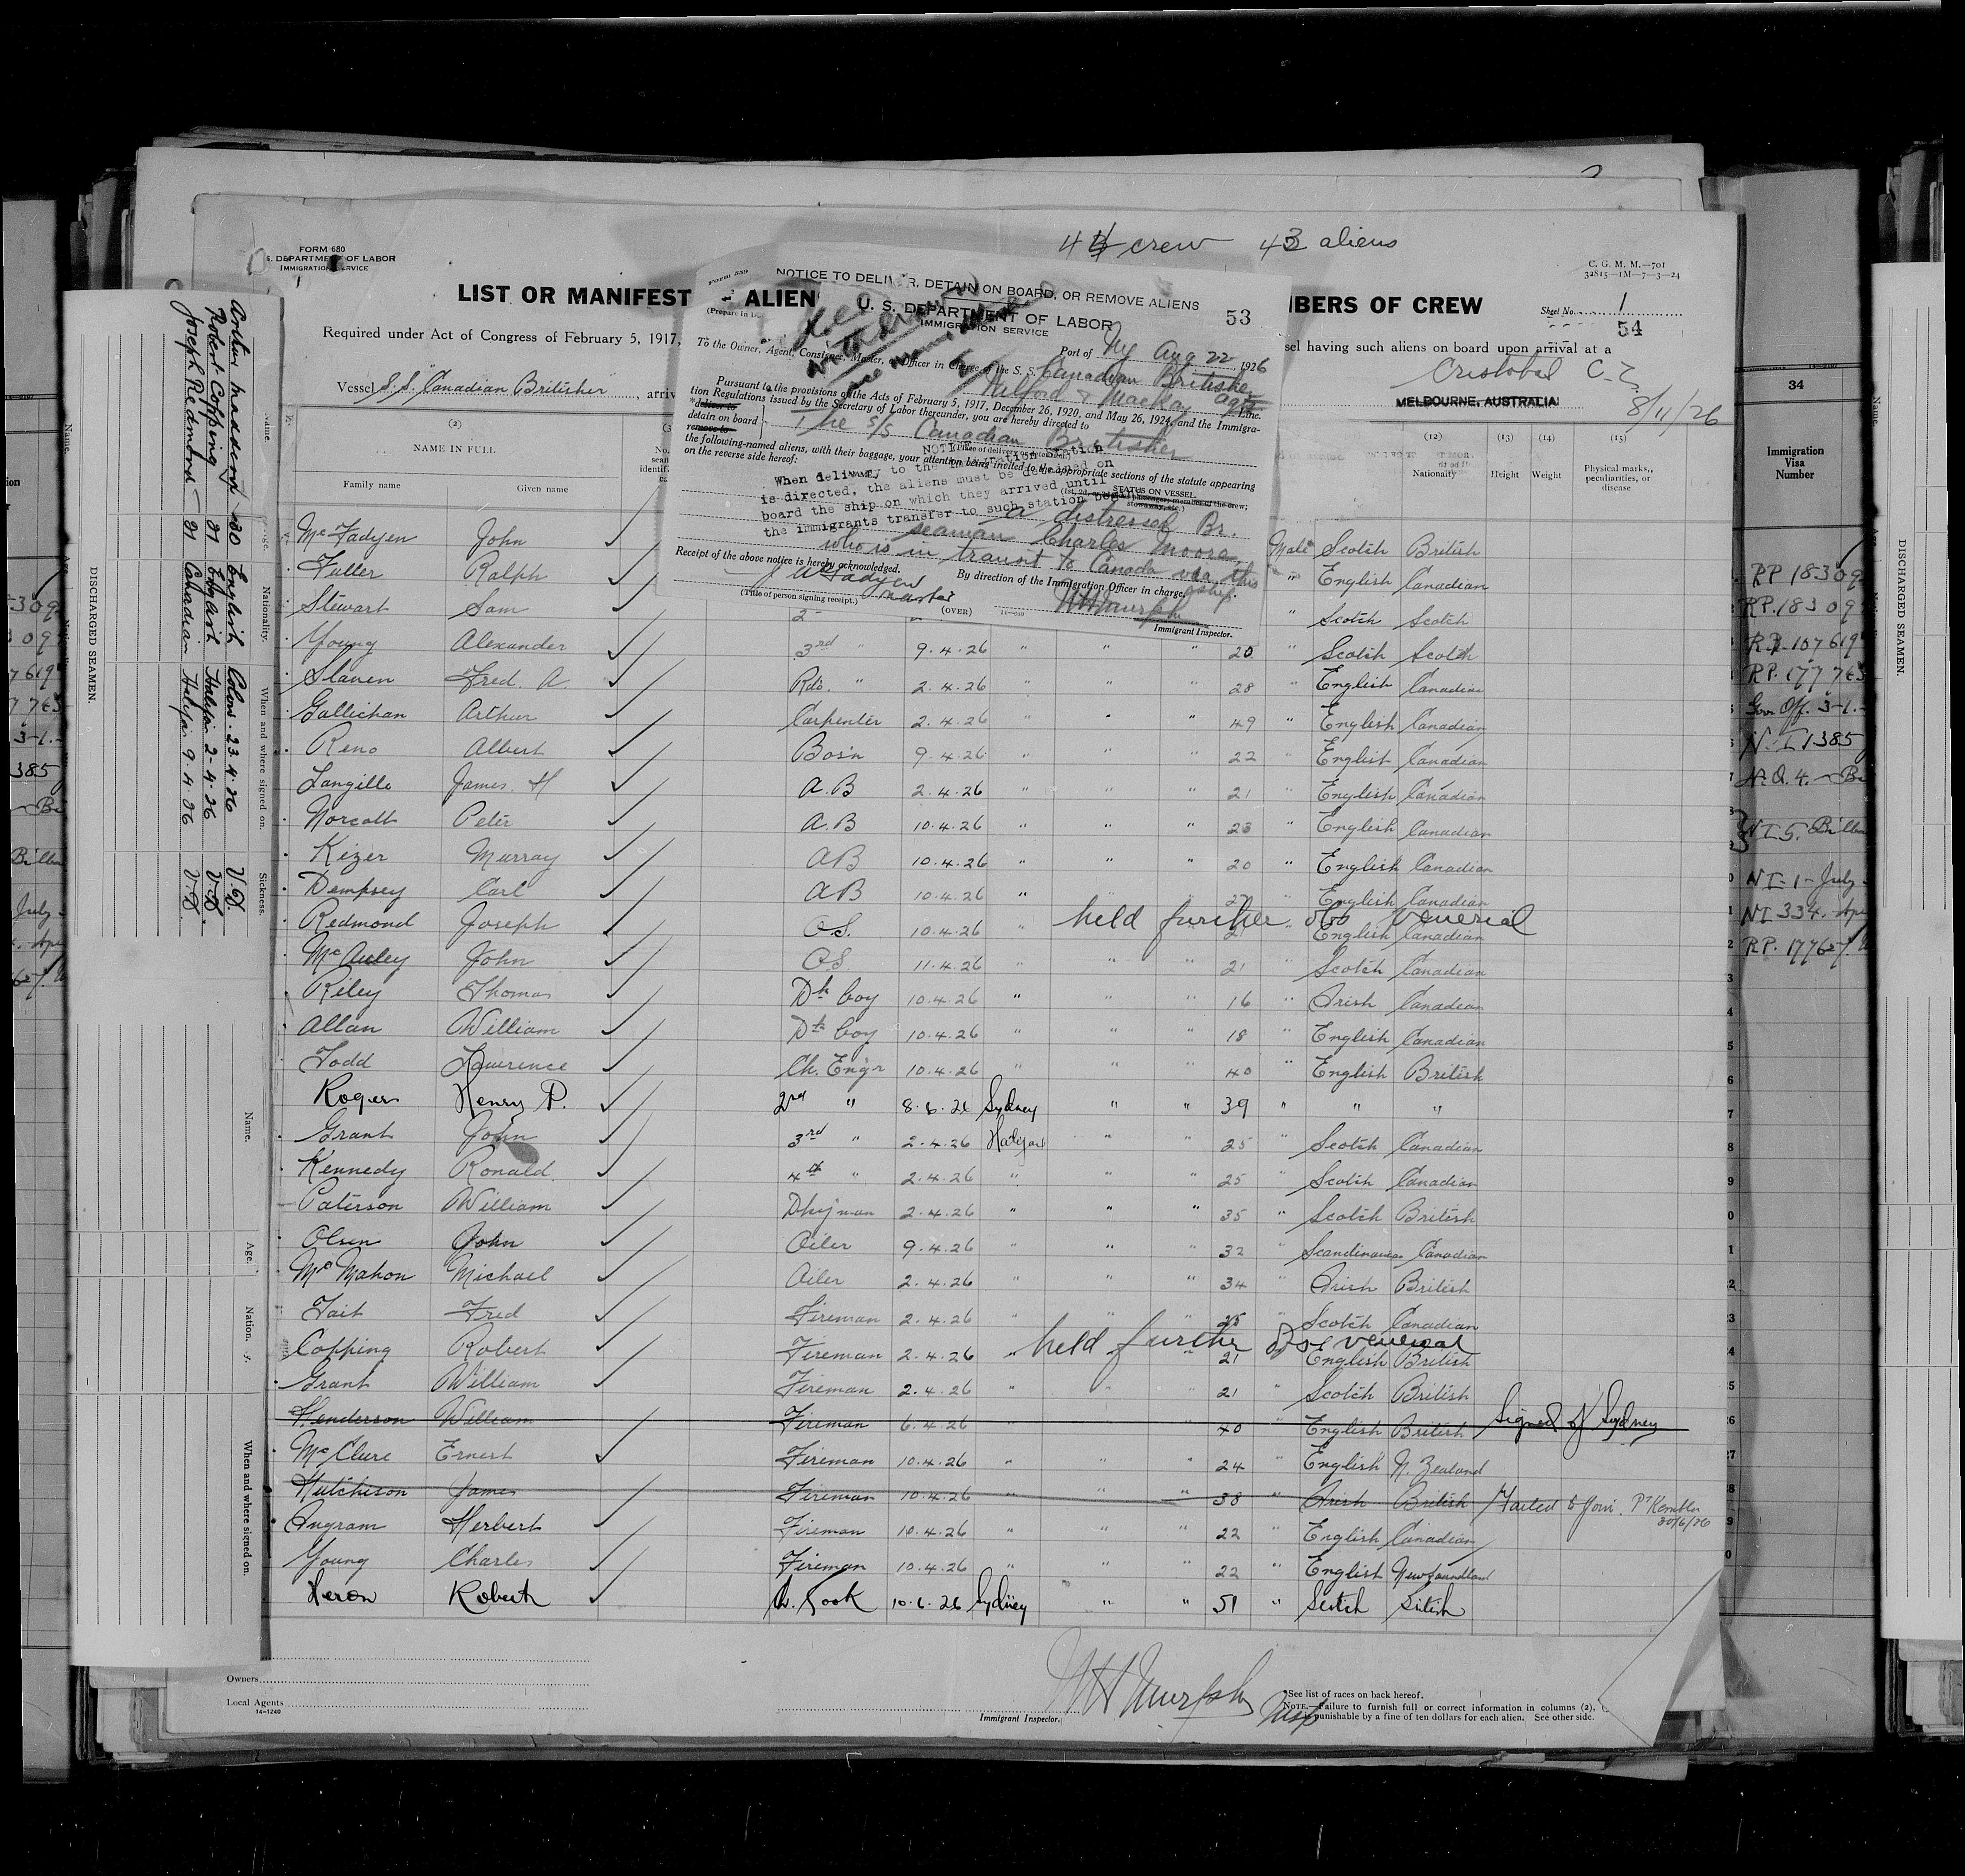 44 crew 43 aliens
FORM 680
S. DEPARTMENT OF LABOR
IMMIGRATION SERVICE
C. G. M. M.—701
32815—1M—7—3—24
LIST OR MANIFEST
ALIEN
MBERS OF CREW
Sheet No. 1
54
Required under Act of Congress of February 5, 1917,
sel having such aliens on board upon arrival at a
Vessel S.S. Canadian Britisher, arriv
Cristobal C-Z
MELBOURNE, AUSTRALIA
8/11/26
Form 559
NOTICE TO DELIVER, DETAIN ON BOARD, OR REMOVE ALIENS
U. S. DEPARTMENT OF LABOR
IMMIGRATION SERVICE
53
Port of Ny Aug 22, 1926
To the Owner, Agent, Consignee, Master, or Officer in Charge of the S. S. Canadian Britisher
Line.
Pursuant to the provisions of the Acts of February 5, 1917, December 26, 1920, and May 26, 1924, and the Immigra-
tion Regulations issued by the Secretary of Labor thereunder, you are hereby directed to
*deliver to
detain on board
remove to
The S/S Canadian Britisher
the following-named aliens, with their baggage, your attention being invited to the appropriate sections of the statute appearing
on the reverse side hereof:
NOTICE
When delivery to the Immigration Station
is directed, the aliens must be detained on
board the ship on which they arrived until
the immigrants transfer to such station
STATUS ON VESSEL
a distressed Br.
seaman Charles Moore
who is in transit to Canada via this
ship.
Receipt of the above notice is hereby acknowledged.
By direction of the Immigration Officer in charge.
Master
(Title of person signing receipt.)
(OVER)
WHMurphy
Immigrant Inspector.
(2)
NAME IN FULL
Family name Given name
(12)
Nationality
(13)
Height
(14)
Weight
(15)
Physical marks, peculiarities, or disease
McFadyen John Male Scotch British
Fuller Ralph " English Canadian
Stewart Sam " Scotch Scotch
Young Alexander 3rd " 9.4.26 " " " 20 " Scotch Scotch
Slaven Fred. A. Rdo. " 2.4.26 " " " 28 " English Canadian
Gallichan Arthur Carpenter 2.4.26 " " " 49 " English Canadian
Reno Albert Bosn 9.4.26 " " " 22 " English Canadian
Langille James. H A.B 2.4.26 " " " 21 " English Canadian
Norcott Peter A.B 10.4.26 " " " 23 " English Canadian
Kizer Murray AB 10.4.26 " " " 20 " English Canadian
Dempsey Carl AB 10.4.26 " " " 27 " English Canadian
Redmond Joseph O.S. 10.4.26 " held further obs venereal 21 English Canadian
McAuley John O.S 11.4.26 " " " 21 " Scotch Canadian
Riley Thomas Dk boy 10.4.26 " " " 16 " Irish Canadian
Allan William Dk boy 10.4.26 " " " 18 " English Canadian
Todd Lawrence Ch. Engr 10.4.26 " " " 40 " English British
Roger Henry P. 2nd " 8.6.26 Sydney " " 39 " " "
Grant John 3rd " 2.4.26 Halifax " " 25 " Scotch Canadian
Kennedy Ronald 4th " 2.4.26 " " " 25 " Scotch Canadian
Paterson William Dkyman 2.4.26 " " " 35 " Scotch British
Olsen John Oiler 9.4.26 " " " 32 " Scandinavian Canadian
McMahon Michael Oiler 2.4.26 " " " 34 " Irish British
Tait Fred Fireman 2.4.26 " " " 25 " Scotch Canadian
Copping Robert Fireman 2.4.26 " held further obs venereal 21 English British
Grant William Fireman 2.4.26 " " " 21 " Scotch British
Henderson William Fireman 6.4.26 40 " English British Signed of Sydney
McClure Ernest Fireman 10.4.26 " " " 24 " English N. Zealand
Hutchison James Fireman 10.4.26 " " " 38 " Irish British Failed to Join. Pt Kembla 30/6/26
Ingram Herbert Fireman 10.4.26 " " " 22 " English Canadian
Young Charles Fireman 10.4.26 " " " 22 " English Newfoundland
Heron Robert Cook 10.6.26 Sydney " " 51 " Scotch British
Owners
Local Agents
14—1240
WHMurphy
Insp
Immigrant Inspector.
*See list of races on back hereof.
NOTE.—Failure to furnish full or correct information in columns (2),
punishable by a fine of ten dollars for each alien. See other side.
DISCHARGED SEAMEN.
Name. Age. Nationality. When and where signed on. Sickness.
30 English Colon. 23.4.26 V.D.
Robert Copping 21 English Halifax 2-4-26 V.D.
Joseph Redmond 21 Canadian Halifax 9.4.26 V.D.
Name. Age. When and where signed on.
34
Immigration
Visa
Number
RP 18309
RP. 18309
RP. 107619
RP. 177763
Gov. Off. 3-1.
N-I 1385
NI 5. Billm
NI-1-July
NI 334. Apr
RP. 177627.
DISCHARGED SEAMEN.
Name.